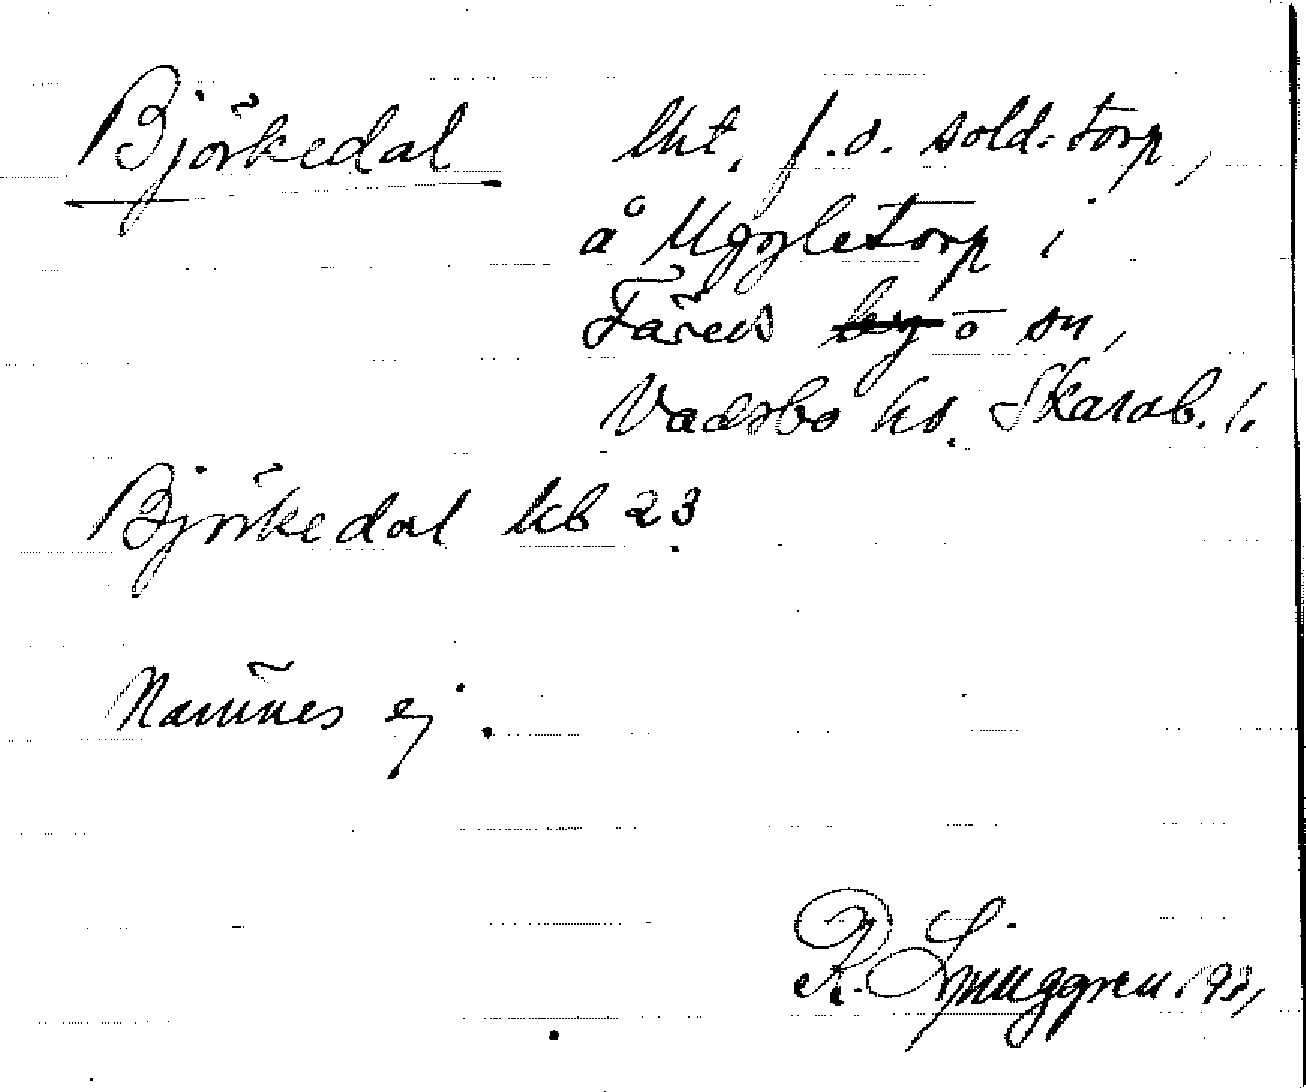 Björkedal lht, f.d. sold:torp,
å Uggletorp i
Färeds by o sn,
Vadsbo hd. Skarab. l.
Björkedal kb 23
Namnes ej.
R. Ljunggren 193